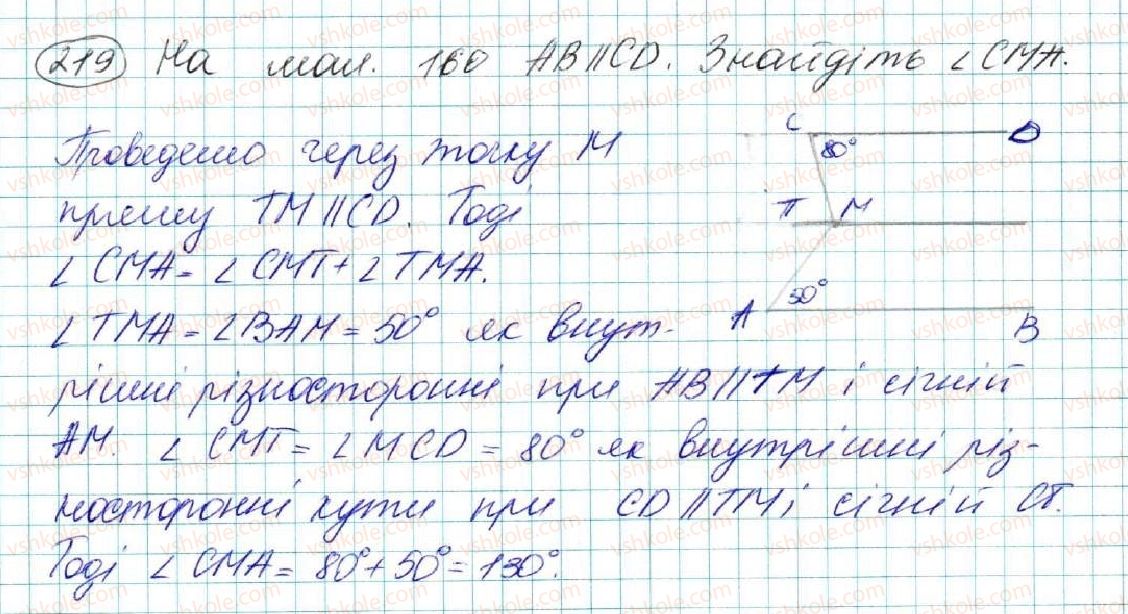 219 На мал. 160 AB∥CD. Знайдіть ∠CMA.
Проведемо через точку M
пряму TM∥CD. Тоді
∠CMA = ∠CMT + ∠TMA.
∠TMA = ∠BAM = 50° як внут-
рішні різносторонні при AB∥TM і січній
AM. ∠CMT = ∠MCD = 80° як внутрішні різ-
носторонні кути при CD∥TM і січній CT.
Тоді ∠CMA = 80° + 50° = 130°.
C D
80°
T M
50°
A B
vshkole.com